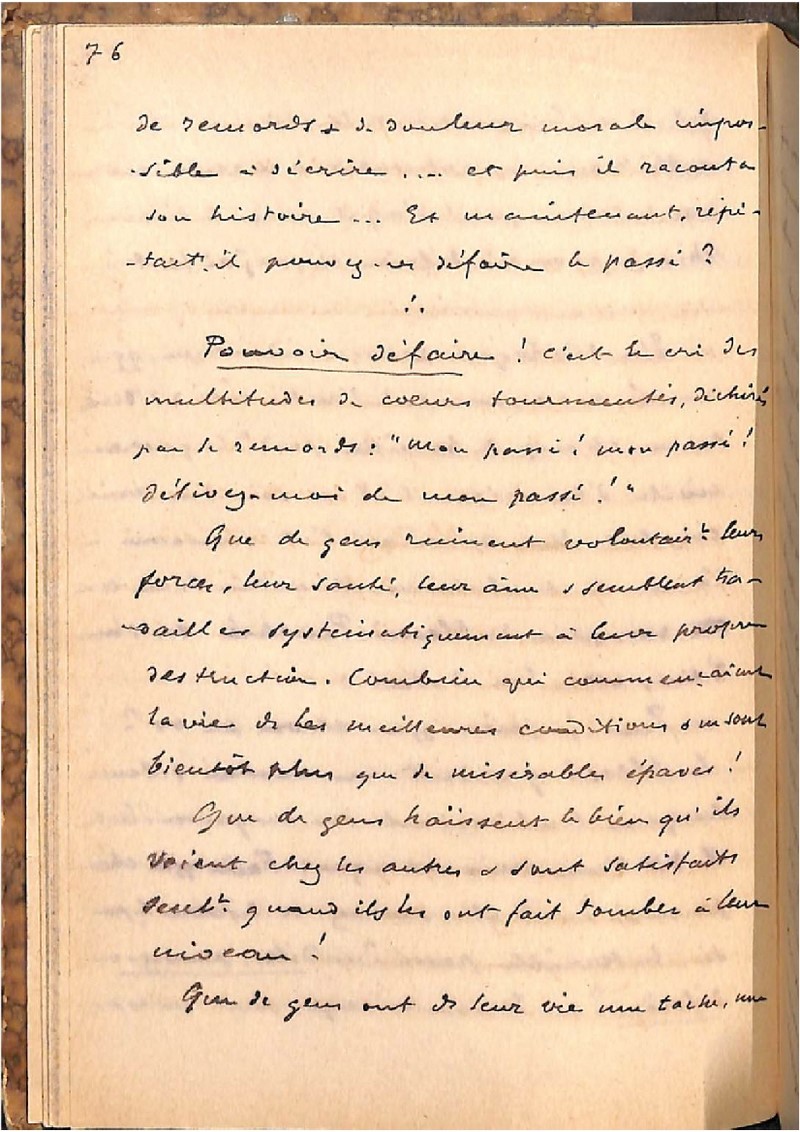 76
de remords & de douleur morale impos-
-sible à décrire .... et puis il raconta
son histoire ... Et maintenant, répé-
-tait-il, pouvez-vs défaire le passé ?
∴
Pouvoir défaire ! c'est le cri des
multitudes de coeurs tourmentés, déchirés
par le remords : "Mon passé ! mon passé !
délivrez-moi de mon passé !"
Que de gens ruinent volontairt leurs
forces, leur santé, leur âme & semblent tra-
-vailler systématiquement à leur propre
destruction. Combien qui commençaient
la vie ds les meilleures conditions & ne sont
bientôt plus que de misérables épaves !
Que de gens haïssent le bien qu'ils
voient chez les autres & sont satisfaits
seult quand ils les ont fait tomber à leur
niveau !
Que de gens ont ds leur vie une tache, une